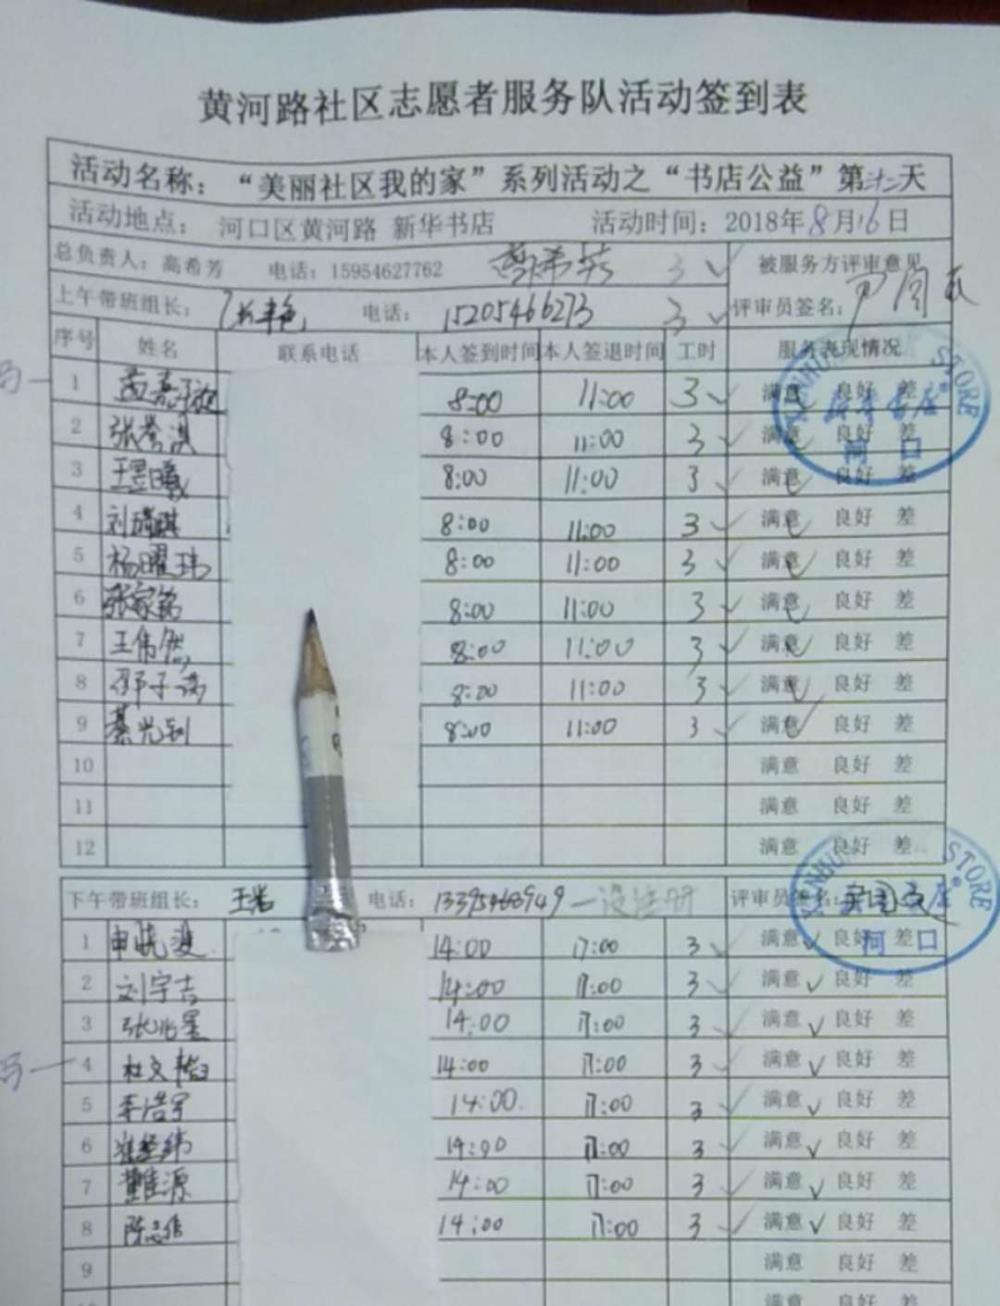 黄河路社区志愿者服务队活动签到表
活动名称：“美丽社区我的家”系列活动之“书店公益”第十二天
活动地点： 河口区黄河路 新华书店 活动时间：2018年8月16日
总负责人：高希芳 电话：15954627762 高希芳 3 ✓ 被服务方评审意见
上午带班组长： 电话： 15205466273 3 ✓ 评审员签名：
序号 姓名 联系电话 本人签到时间 本人签退时间 工时 服务表现情况
1 8:00 11:00 3 ✓ 满意✓ 良好 差
2 张誉淇 8:00 11:00 3 ✓ 满意✓ 良好 差
3 王昱曦 8:00 11:00 3 ✓ 满意✓ 良好 差
4 8:00 11:00 3 ✓ 满意✓ 良好 差
5 杨曜玮 8:00 11:00 3 ✓ 满意✓ 良好 差
6 张家铭 8:00 11:00 3 ✓ 满意✓ 良好 差
7 王伟然 8:00 11:00 3 ✓ 满意✓ 良好 差
8 邵子涵 8:00 11:00 3 ✓ 满意✓ 良好 差
9 8:00 11:00 3 ✓ 满意✓ 良好 差
10 满意 良好 差
11 满意 良好 差
12 满意 良好 差
XINHUA STORE
新华书店
河口
下午带班组长： 王岩 电话： 13395468949 一没注册 评审员签名：
1 申晓 14:00 17:00 3 ✓ 满意✓ 良好 差
2 刘宇吉 14:00 17:00 3 ✓ 满意✓ 良好 差
3 张兆星 14:00 17:00 3 ✓ 满意✓ 良好 差
4 杜文 14:00 17:00 3 ✓ 满意✓ 良好 差
5 李浩宇 14:00 17:00 3 ✓ 满意✓ 良好 差
6 崔 14:00 17:00 3 ✓ 满意✓ 良好 差
7 董 源 14:00 17:00 3 ✓ 满意✓ 良好 差
8 陈志伟 14:00 17:00 3 ✓ 满意✓ 良好 差
9 满意 良好 差
满意 良好 差
XINHUA STORE
河口